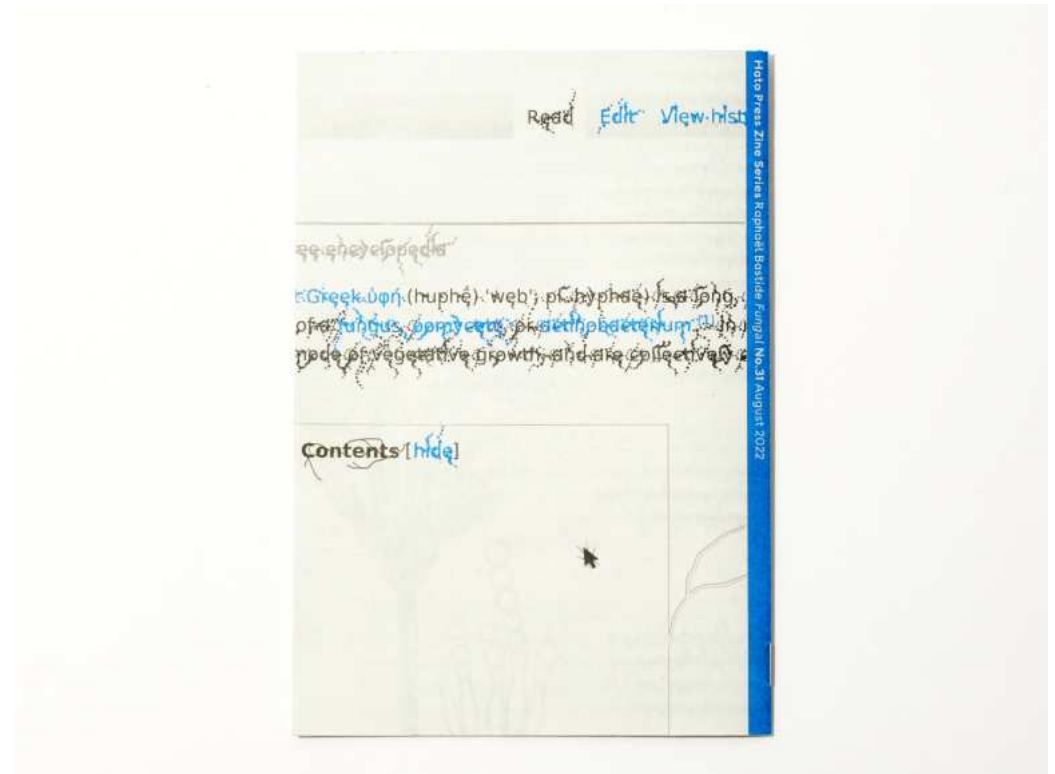 Read Edit View hist
ee encyclopedia
Greek ὑφή (huphḗ) 'web'; pl. hyphae) is a long,
of a fungus, oomycete, or actinobacterium.[1] In
mode of vegetative growth, and are collectively
Contents [hide]
Hato Press Zine Series Raphaël Bastide Fungal No.31 August 2022